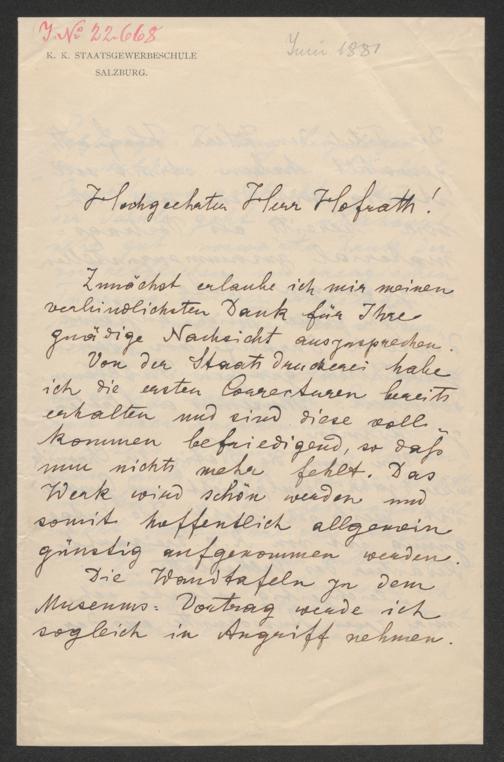 J. No 22.668
Juni 1881
K. K. STAATSGEWERBESCHULE
SALZBURG.
Hochgeehrter Herr Hofrath!
Zunächst erlaube ich mir meinen
verbindlichsten Dank für Ihre
gnädige Nachsicht auszusprechen.
Von der Staatsdruckerei habe
ich die ersten Correcturen bereits
erhalten und sind diese voll-
kommen befriedigend, so daß
nun nichts mehr fehlt. Das
Werk wird schön werden und
somit hoffentlich allgemein
günstig aufgenommen werden.
Die Wandtafeln zu dem
Museums-Vortrag werde ich
sogleich in Angriff nehmen.